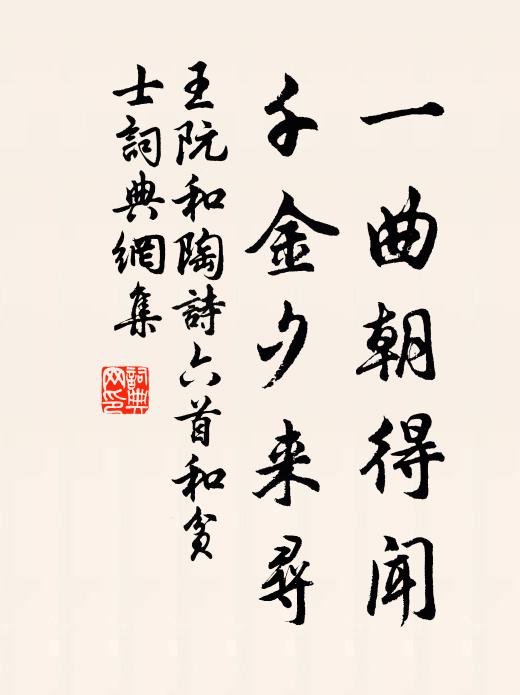 一曲朝得闻
千金夕来尋
王阮和陶詩六首和贫
士詞典網集
詞典
网印